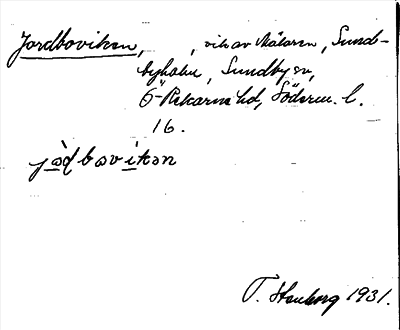 Jordboviken, , vik av Mälaren, Sund-
byholm, Sundby sn,
Ö-Rekarne hd, Söderm. l.
16.
jo̱ḍbovikən
T. Stenborg 1931.